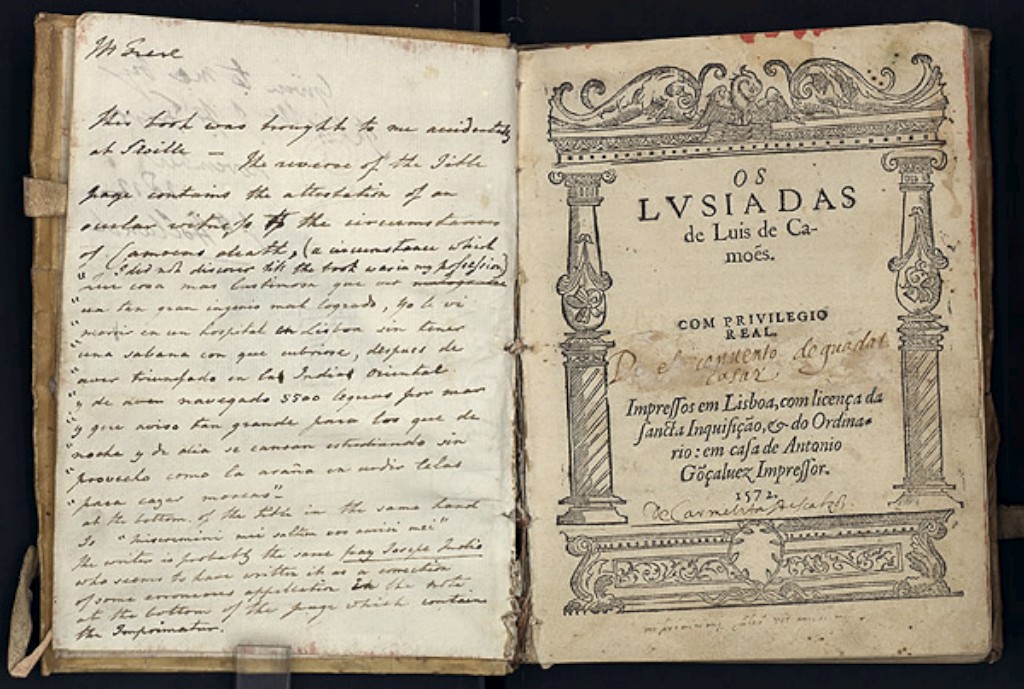 Mr Frere
This book was brought to me accidentally
at Seville — The reverse of the Title
page contains the attestation of an
ocular witness to the circumstances
of Camoens death, (a circumstance which
I did not discover till the book was in my possession)
"que cosa mas lastimosa que ver
"un tan gran ingenio mal logrado, yo le vi
"morir en un hospital en Lisboa sin tener
"una sabana con que cubrirse, despues de
"aver triunfado en la India Oriental
"y de aver navegado 5500 leguas por mar
"y que aviso tan grande para los que de
"noche y de dia se cansan estudiando sin
"provecho como la araña en urdir telas
"para cazar moscas"
at the bottom of the title in the same hand
is "miseremini mei saltem vos amici mei"
The writer is probably the same fray Josepe Indio
who seems to have written it as a correction
of some erroneous application in the note
at the bottom of the page which contains
the Imprimatur.
OS
LVSIADAS
de Luis de Ca-
moẽs.
COM PRIVILEGIO
REAL.
De el conuento de guadal
cazar
Impreſſos em Lisboa, com licença da
ſancta Inquiſição, & do Ordina-
rio: em caſa de Antonio
Gõçaluez Impreſſor.
1572.
de Carmelitas descalzos